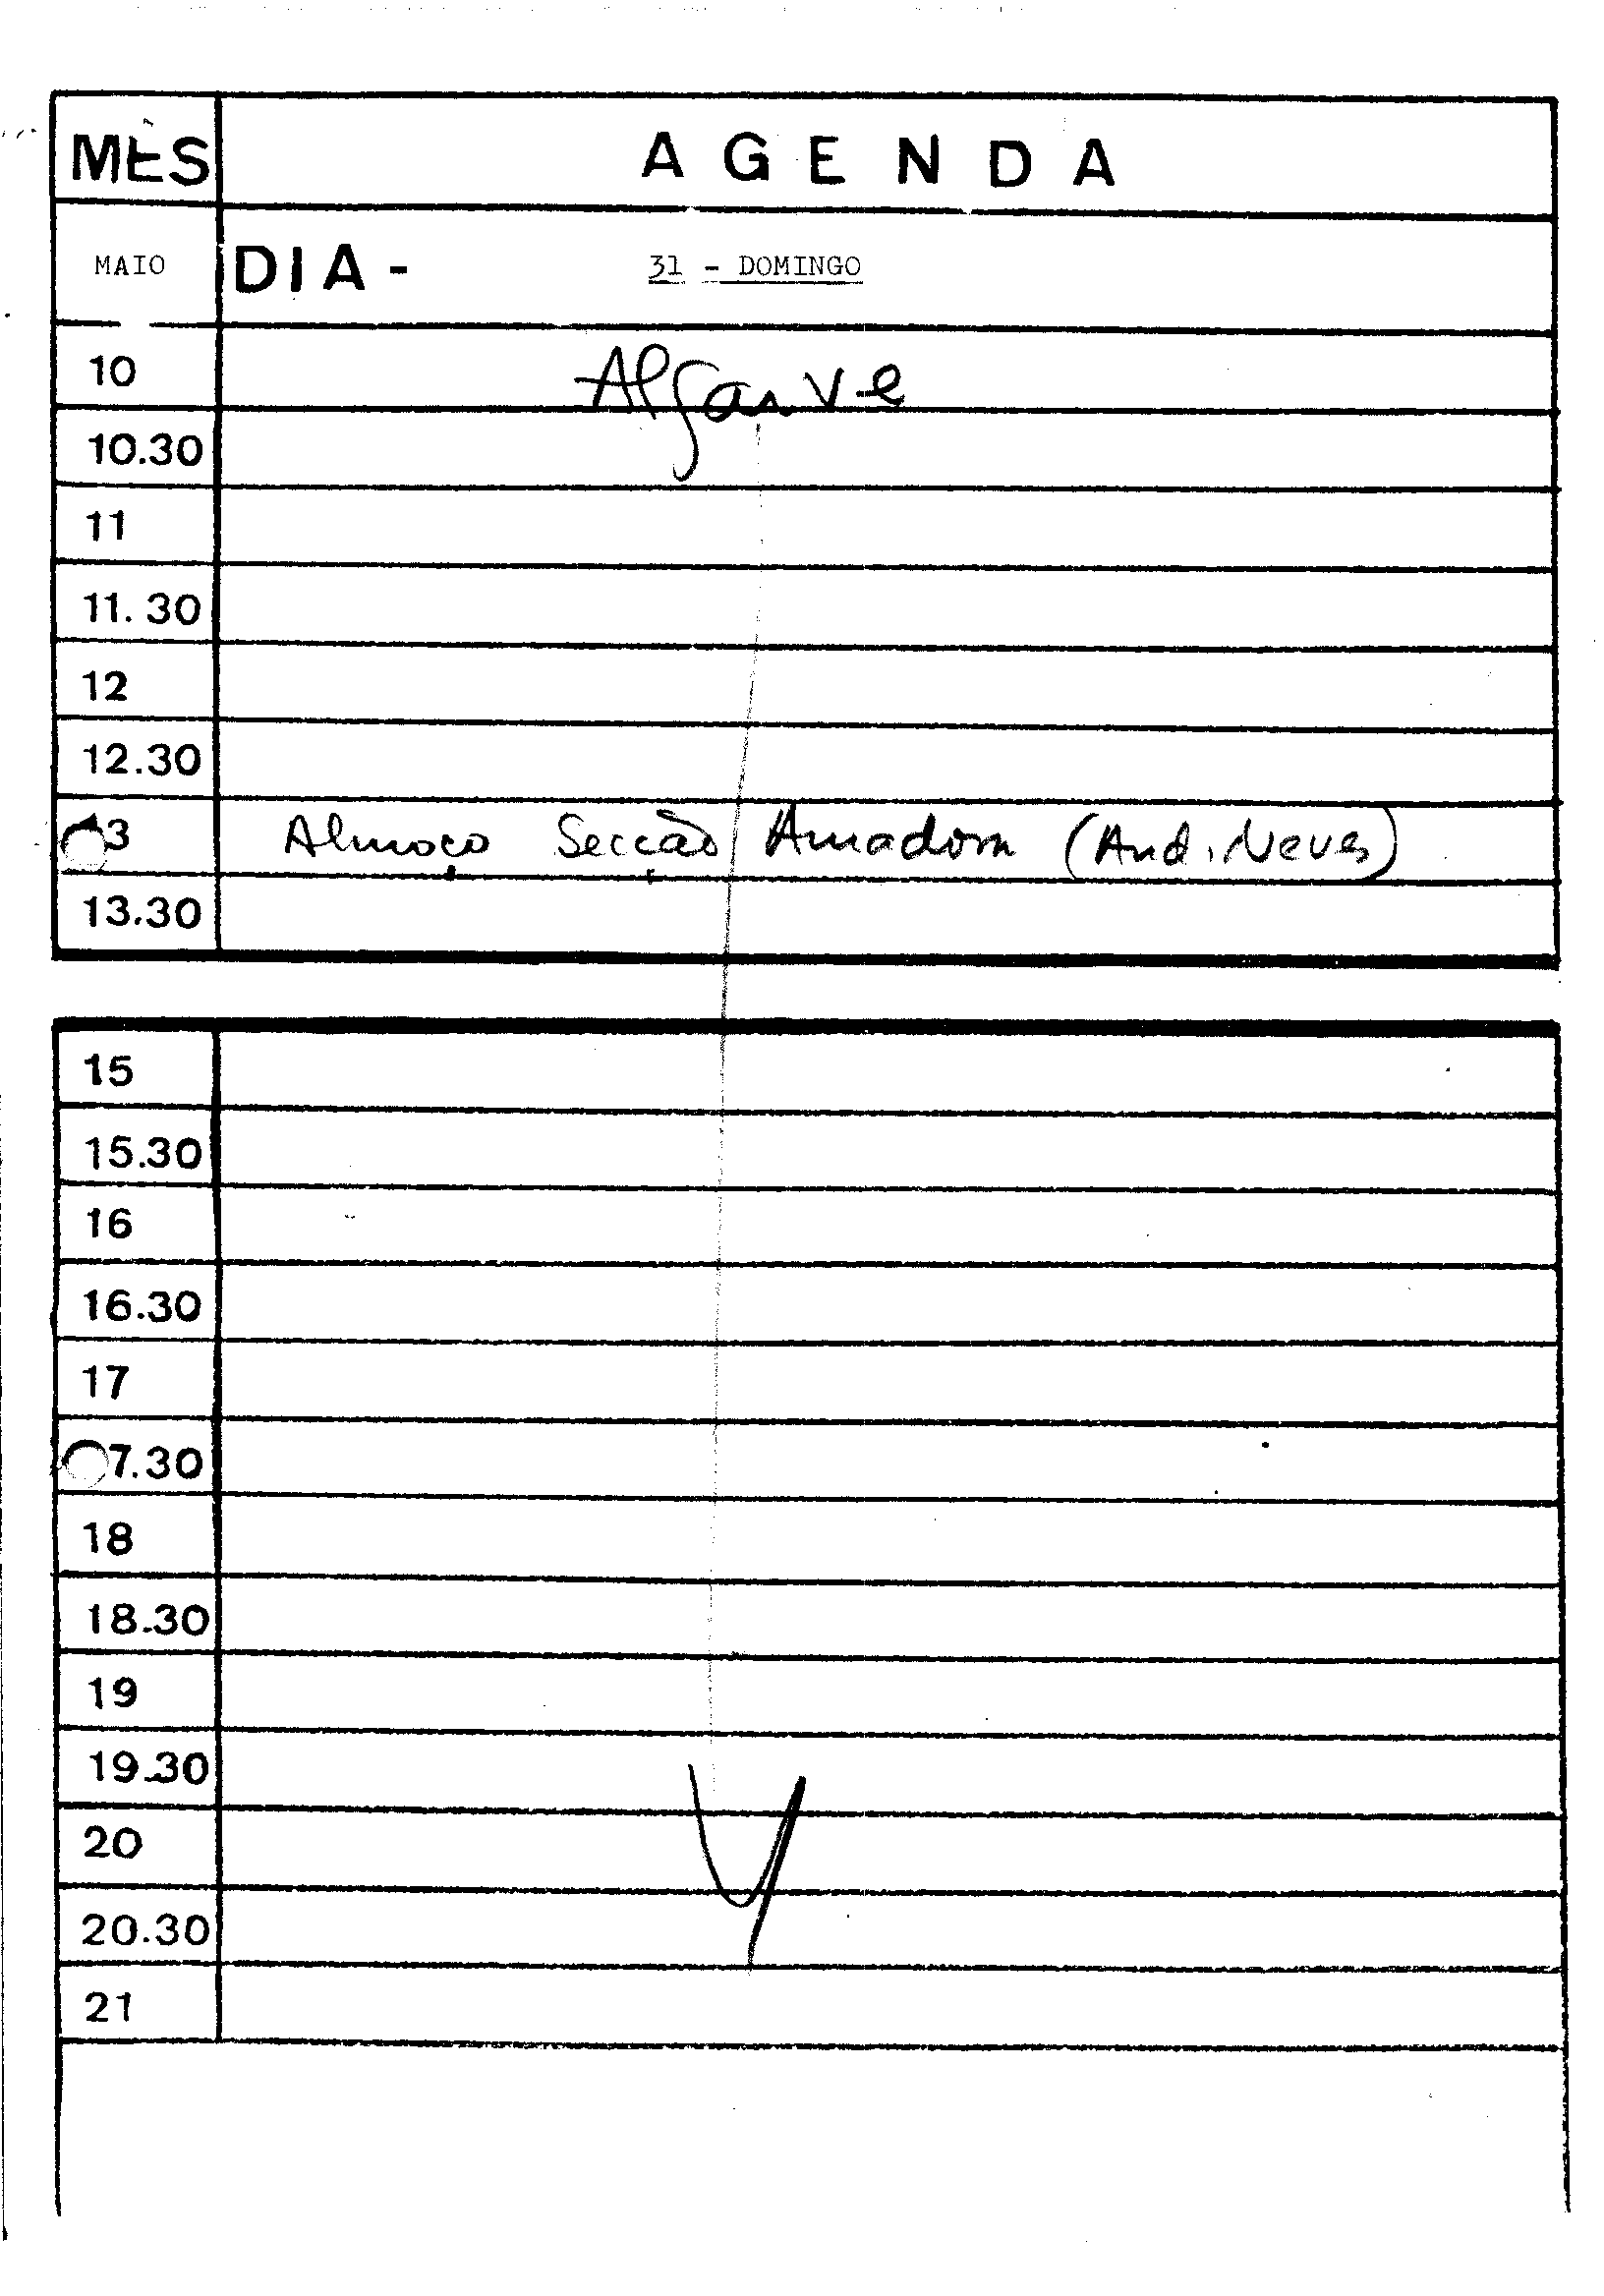 MÊS AGENDA
MAIO DIA - 31 - DOMINGO
10 Algarve
10.30
11
11.30
12
12.30
3 Almoço Secção Amadora (And. Neves)
13.30
15
15.30
16
16.30
17
7.30
18
18.30
19
19.30
20
20.30
21